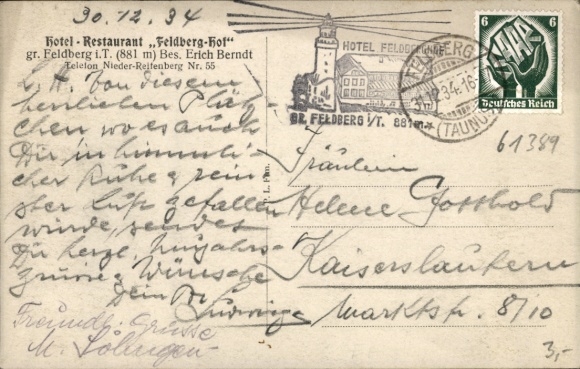 30.12.34
Hotel - Restaurant „Feldberg-Hof"
gr. Feldberg i.T. (881 m) Bes. Erich Berndt
Telefon Nieder-Reifenberg Nr. 55
L. H. Von diesem
herrlichen Plätz-
chen wo es auch
Dir in himmli-
scher Ruhe & rein-
ster Luft gefallen
würde, sendet
Dir herzl. Neujahrs-
grüsse & Wünsche
Dein Br.
Ludwig
Freundl. Grüsse
M.
HOTEL FELDBERGHOF
GR. FELDBERG i/T. 881m
FELDBERG
(TAUNUS)
6 6
SAAR
Deutsches Reich
61389
Fräulein
Helene Gotthold
Kaiserslautern
Marktstr. 8/10
3,-